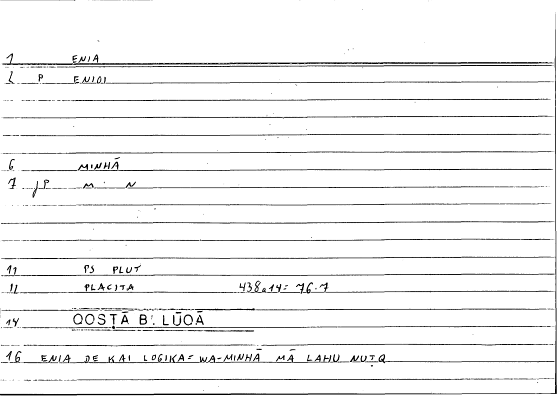 1 ENIA
2 P ENIOI
6 MINHĀ
7 jP M · N
11 PS PLUT
12 PLACITA 438a14= 76.7
14 QOSṬĀ B. LŪQĀ
16 ENIA DE KAI LOGIKA= WA-MINHĀ MĀ LAHU NUṬQ